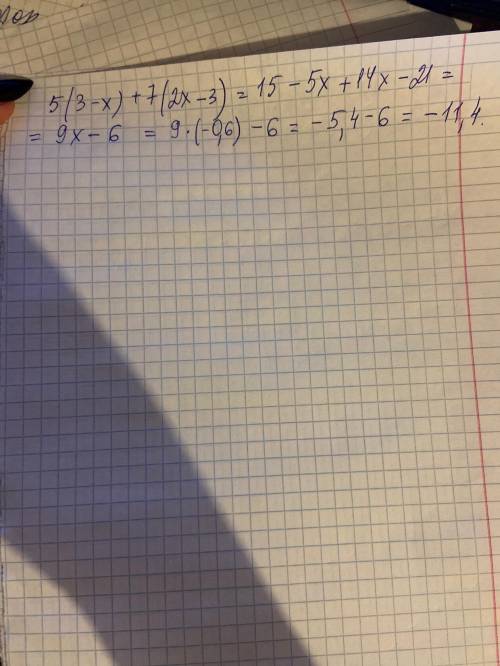 5(3-x) + 7(2x-3) = 15 - 5x + 14x - 21 =
= 9x - 6 = 9 · (-0,6) - 6 = -5,4 - 6 = -11,4.